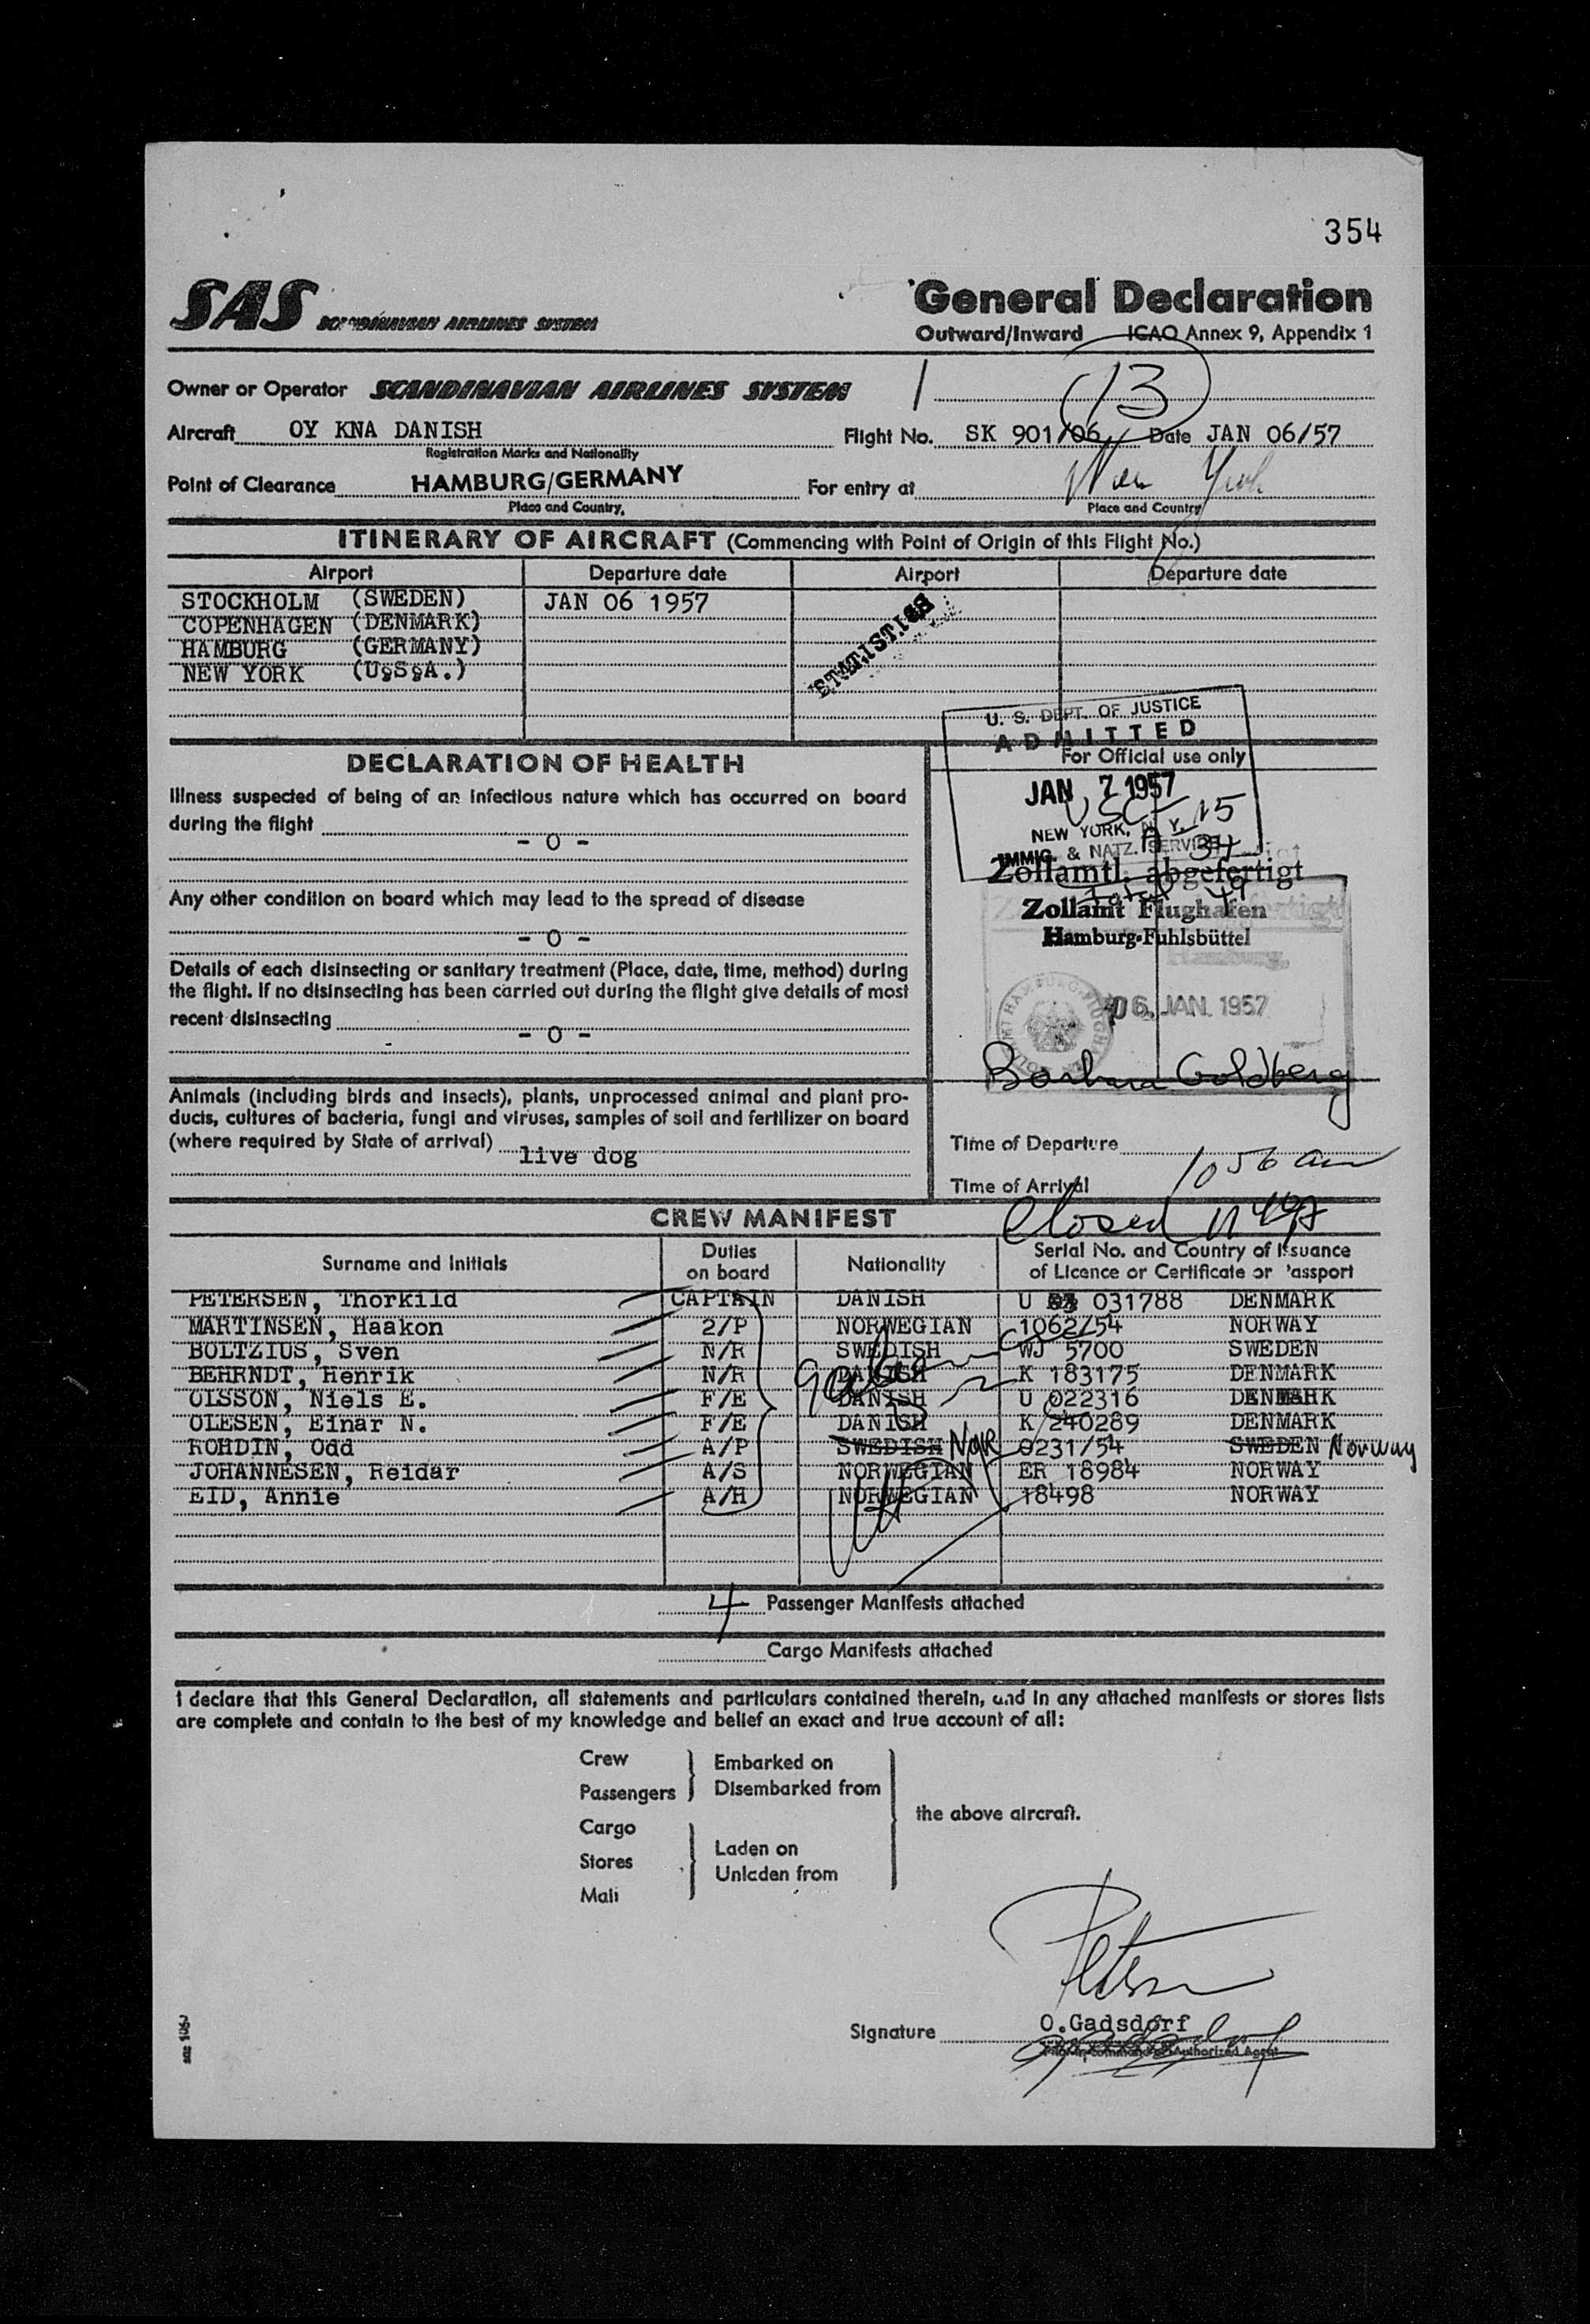 354
SAS SCANDINAVIAN AIRLINES SYSTEM
General Declaration
Outward/Inward ICAO Annex 9, Appendix 1
Owner or Operator SCANDINAVIAN AIRLINES SYSTEM
13
Aircraft OY KNA DANISH Flight No. SK 901/06 Date JAN 06/57
Registration Marks and Nationality
Point of Clearance HAMBURG/GERMANY For entry at New York
Place and Country, Place and Country
ITINERARY OF AIRCRAFT (Commencing with Point of Origin of this Flight No.)
Airport Departure date Airport Departure date
STOCKHOLM (SWEDEN) JAN 06 1957
COPENHAGEN (DENMARK)
HAMBURG (GERMANY)
NEW YORK (U§S§A.)
STATISTICS
U. S. DEPT. OF JUSTICE
ADMITTED
DECLARATION OF HEALTH
For Official use only
Illness suspected of being of an infectious nature which has occurred on board
during the flight
- 0 -
JAN 7 1957
USC 15
NEW YORK, N. Y.
A 34
IMMIG. & NATZ. SERVICE
Zollamtl. abgefertigt
Total 49
Zollamt Flughafen
Hamburg-Fuhlsbüttel
Any other condition on board which may lead to the spread of disease
- 0 -
Details of each disinsecting or sanitary treatment (Place, date, time, method) during
the flight. If no disinsecting has been carried out during the flight give details of most
recent disinsecting
- 0 -
06. JAN. 1957
Barbara Goldberg
Animals (including birds and insects), plants, unprocessed animal and plant pro-
ducts, cultures of bacteria, fungi and viruses, samples of soil and fertilizer on board
(where required by State of arrival)
live dog
Time of Departure
Time of Arrival 1056 am
Closed
CREW MANIFEST
Surname and Initials Duties on board Nationality Serial No. and Country of Issuance of Licence or Certificate or Passport
PETERSEN, Thorkild CAPTAIN DANISH U 031788 DENMARK
MARTINSEN, Haakon 2/P NORWEGIAN 1062/54 NORWAY
BOLTZIUS, Sven N/R SWEDISH WJ 5700 SWEDEN
BEHRNDT, Henrik N/R DANISH K 183175 DENMARK
OISSON, Niels E. F/E DANISH U 022316 DENMARK
OLESEN, Einar N. F/E DANISH K 240289 DENMARK
ROHDIN, Odd A/P SWEDISH NOR 0231/54 SWEDEN Norway
JOHANNESEN, Reidar A/S NORWEGIAN ER 18984 NORWAY
EID, Annie A/H NORWEGIAN 18498 NORWAY
4 Passenger Manifests attached
Cargo Manifests attached
I declare that this General Declaration, all statements and particulars contained therein, and in any attached manifests or stores lists
are complete and contain to the best of my knowledge and belief an exact and true account of all:
Crew
Passengers
Embarked on
Disembarked from
the above aircraft.
Cargo
Stores
Mail
Laden on
Unladen from
Petersen
Signature O.Gadsdorf
Authorized Agent
sas 1060